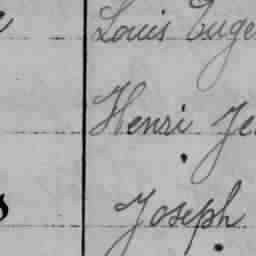 Louis Euge
Henri Je
Joseph